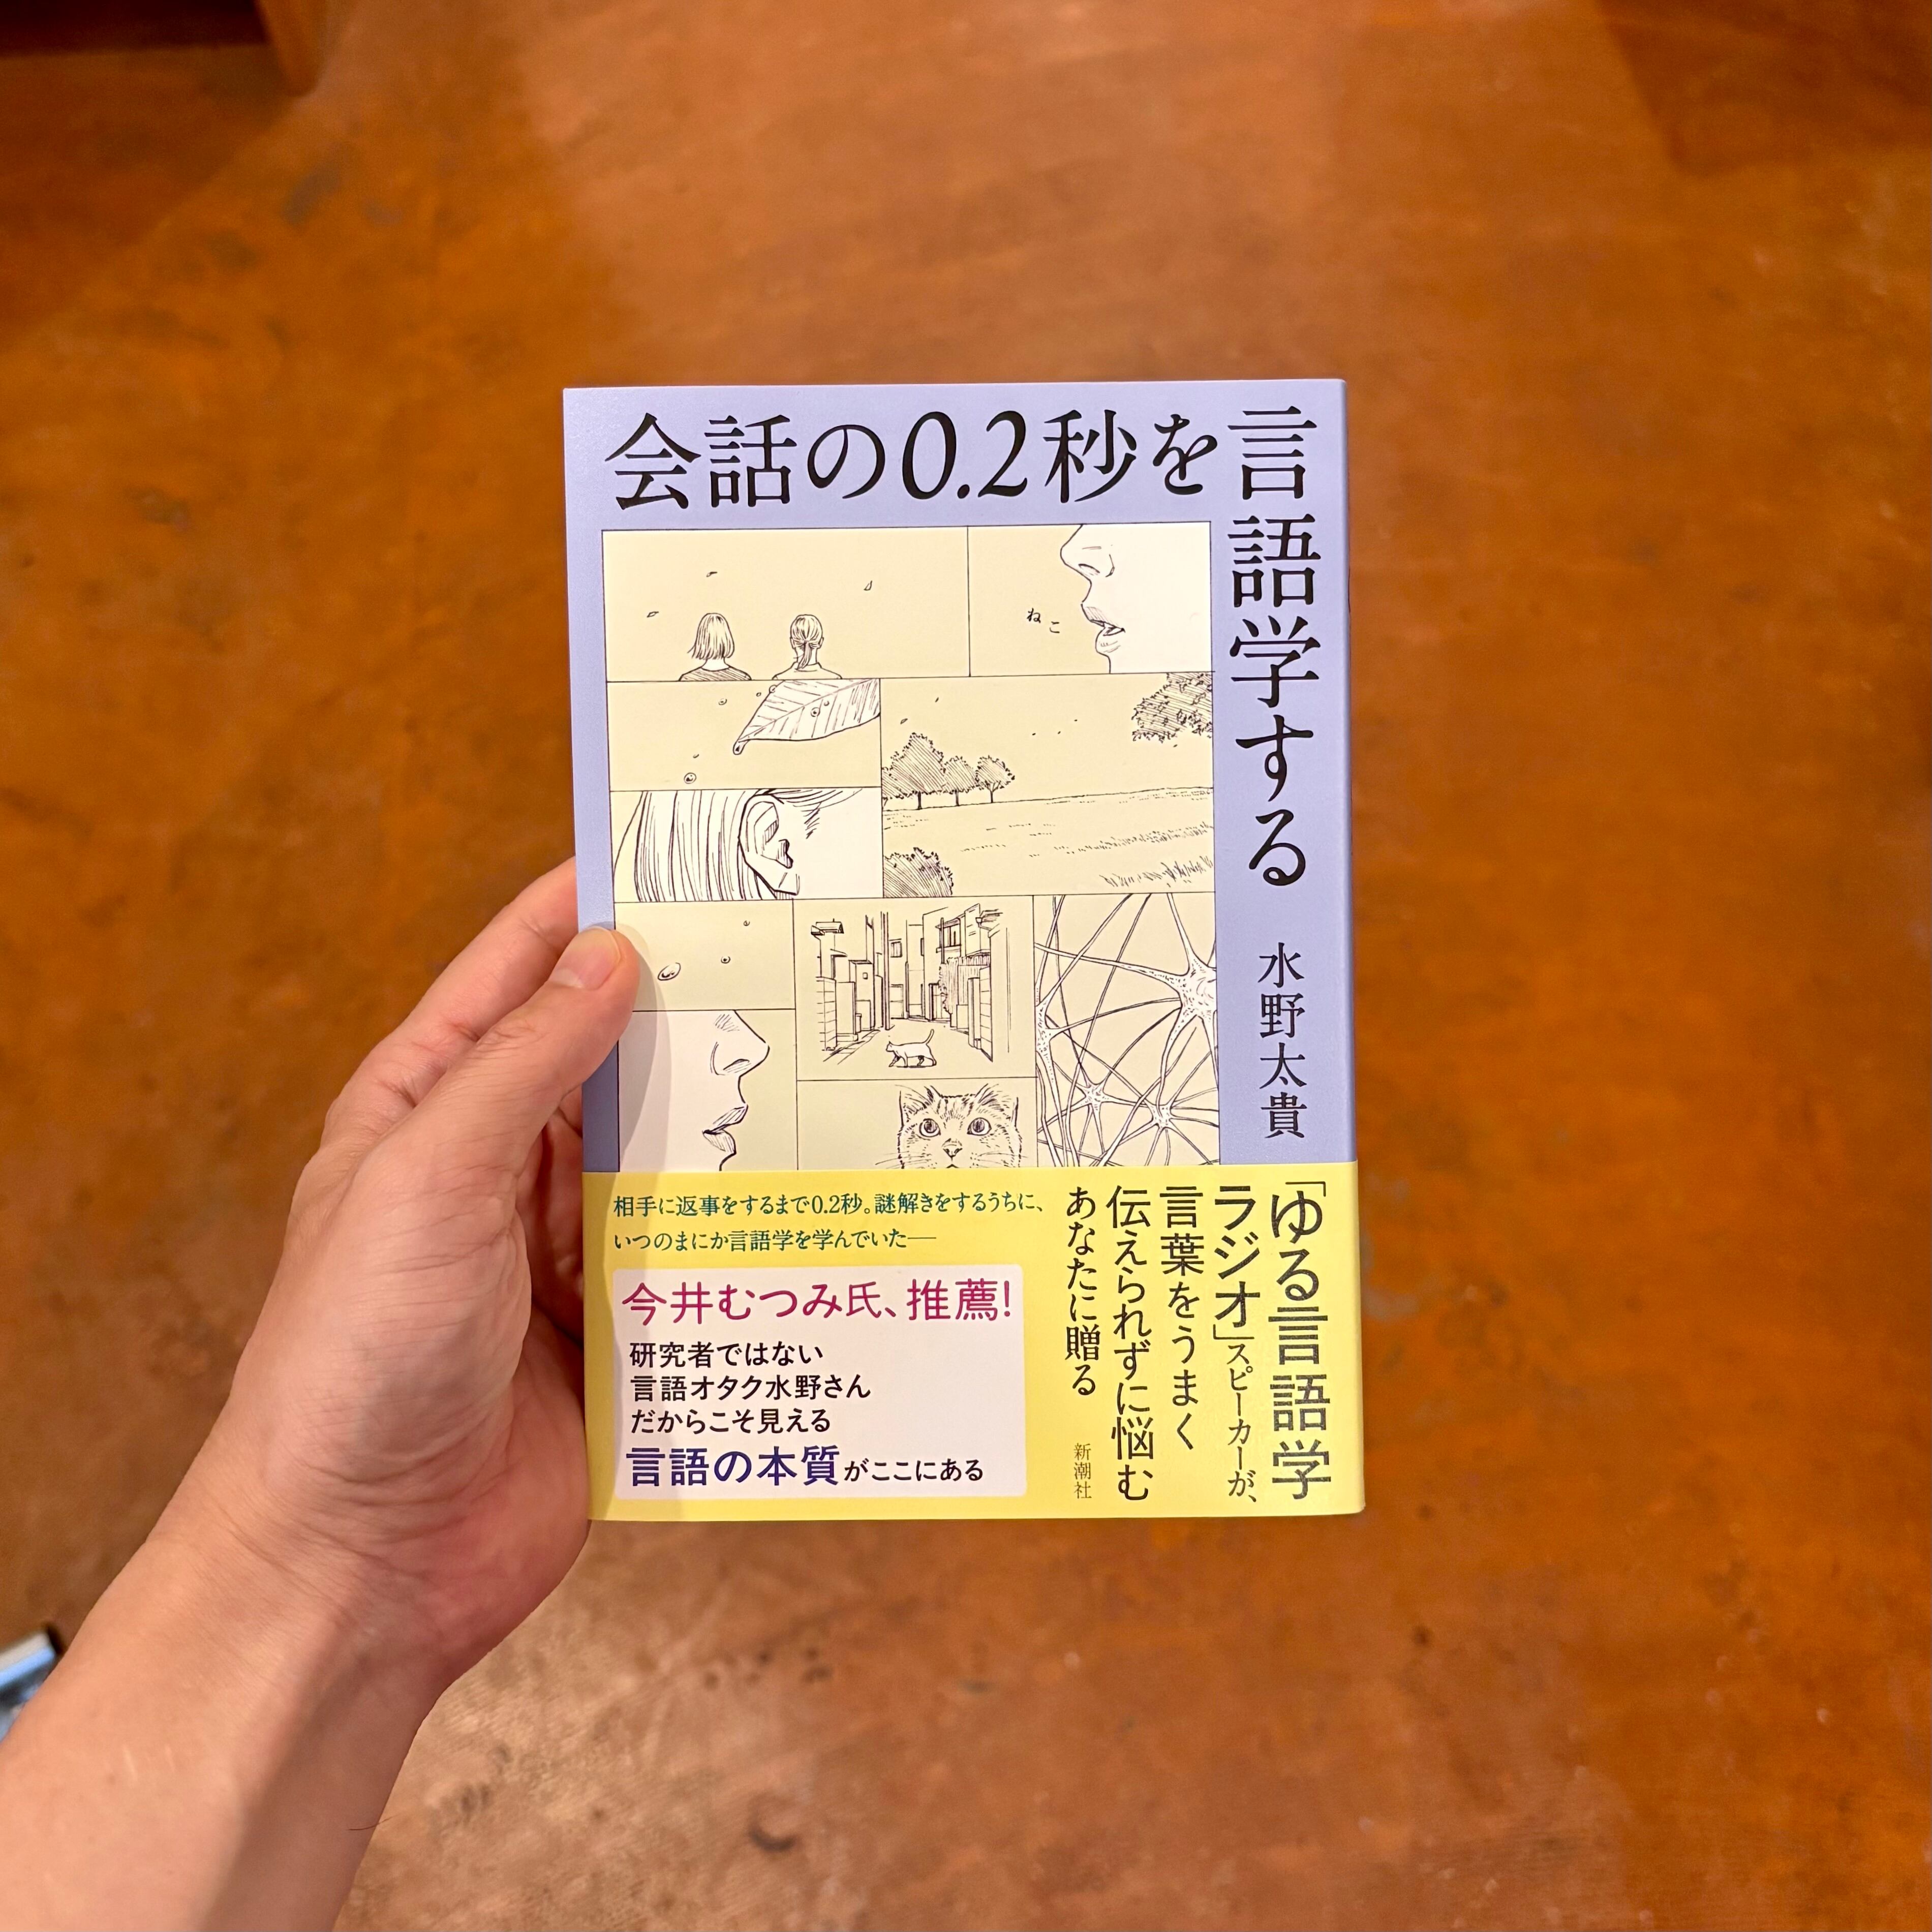 会話の0.2秒を言語学する
水野太貴
ねこ
「ゆる言語学
ラジオ」スピーカーが、
言葉をうまく
伝えられずに悩む
あなたに贈る
新潮社
相手に返事をするまで0.2秒。謎解きをするうちに、
いつのまにか言語学を学んでいた──
今井むつみ氏、推薦!
研究者ではない
言語オタク水野さん
だからこそ見える
言語の本質がここにある